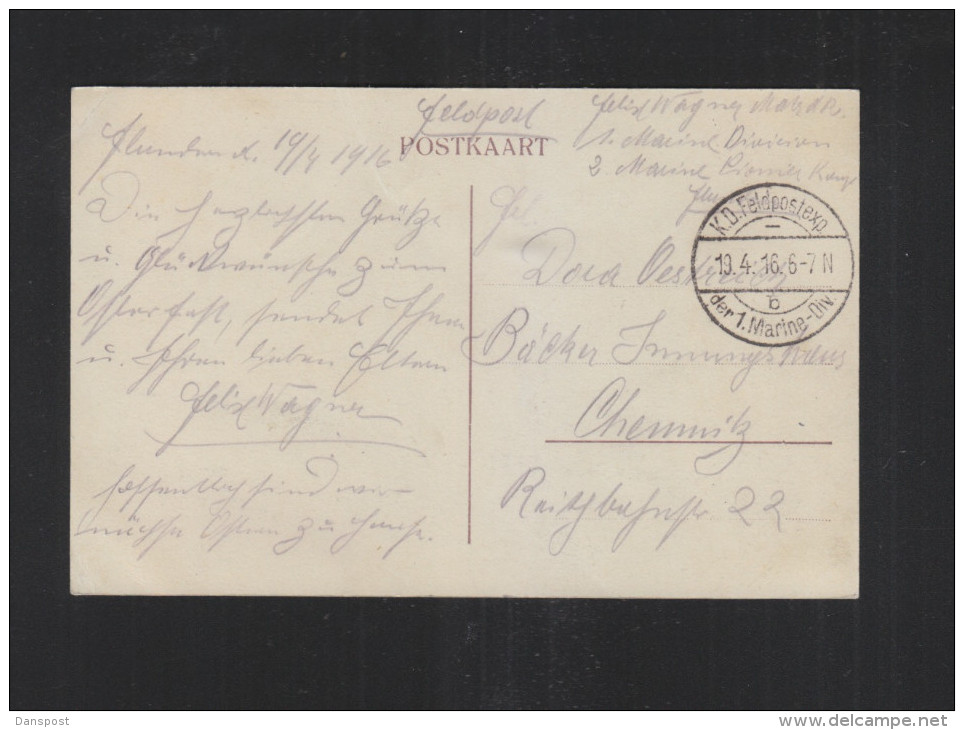 Feldpost
POSTKAART
Felix Wagner
1. Marine Division
2 Marine Pionier Komp
Flandern d. 19/4 1916
Die herzlichsten Grüße
u. Glückwünsche zum
Osterfest, sendet Ihnen
u. Ihren lieben Eltern
Felix Wagner
Hoffentlich sind wir
nächste Ostern zu Hause.
K.D. Feldpostexp.
19.4.16. 6-7 N
b
der 1. Marine-Div.
Dora
Bäcker Innungshaus
Chemnitz
Reitbahnstr. 22
Danspost
www.delcampe.net